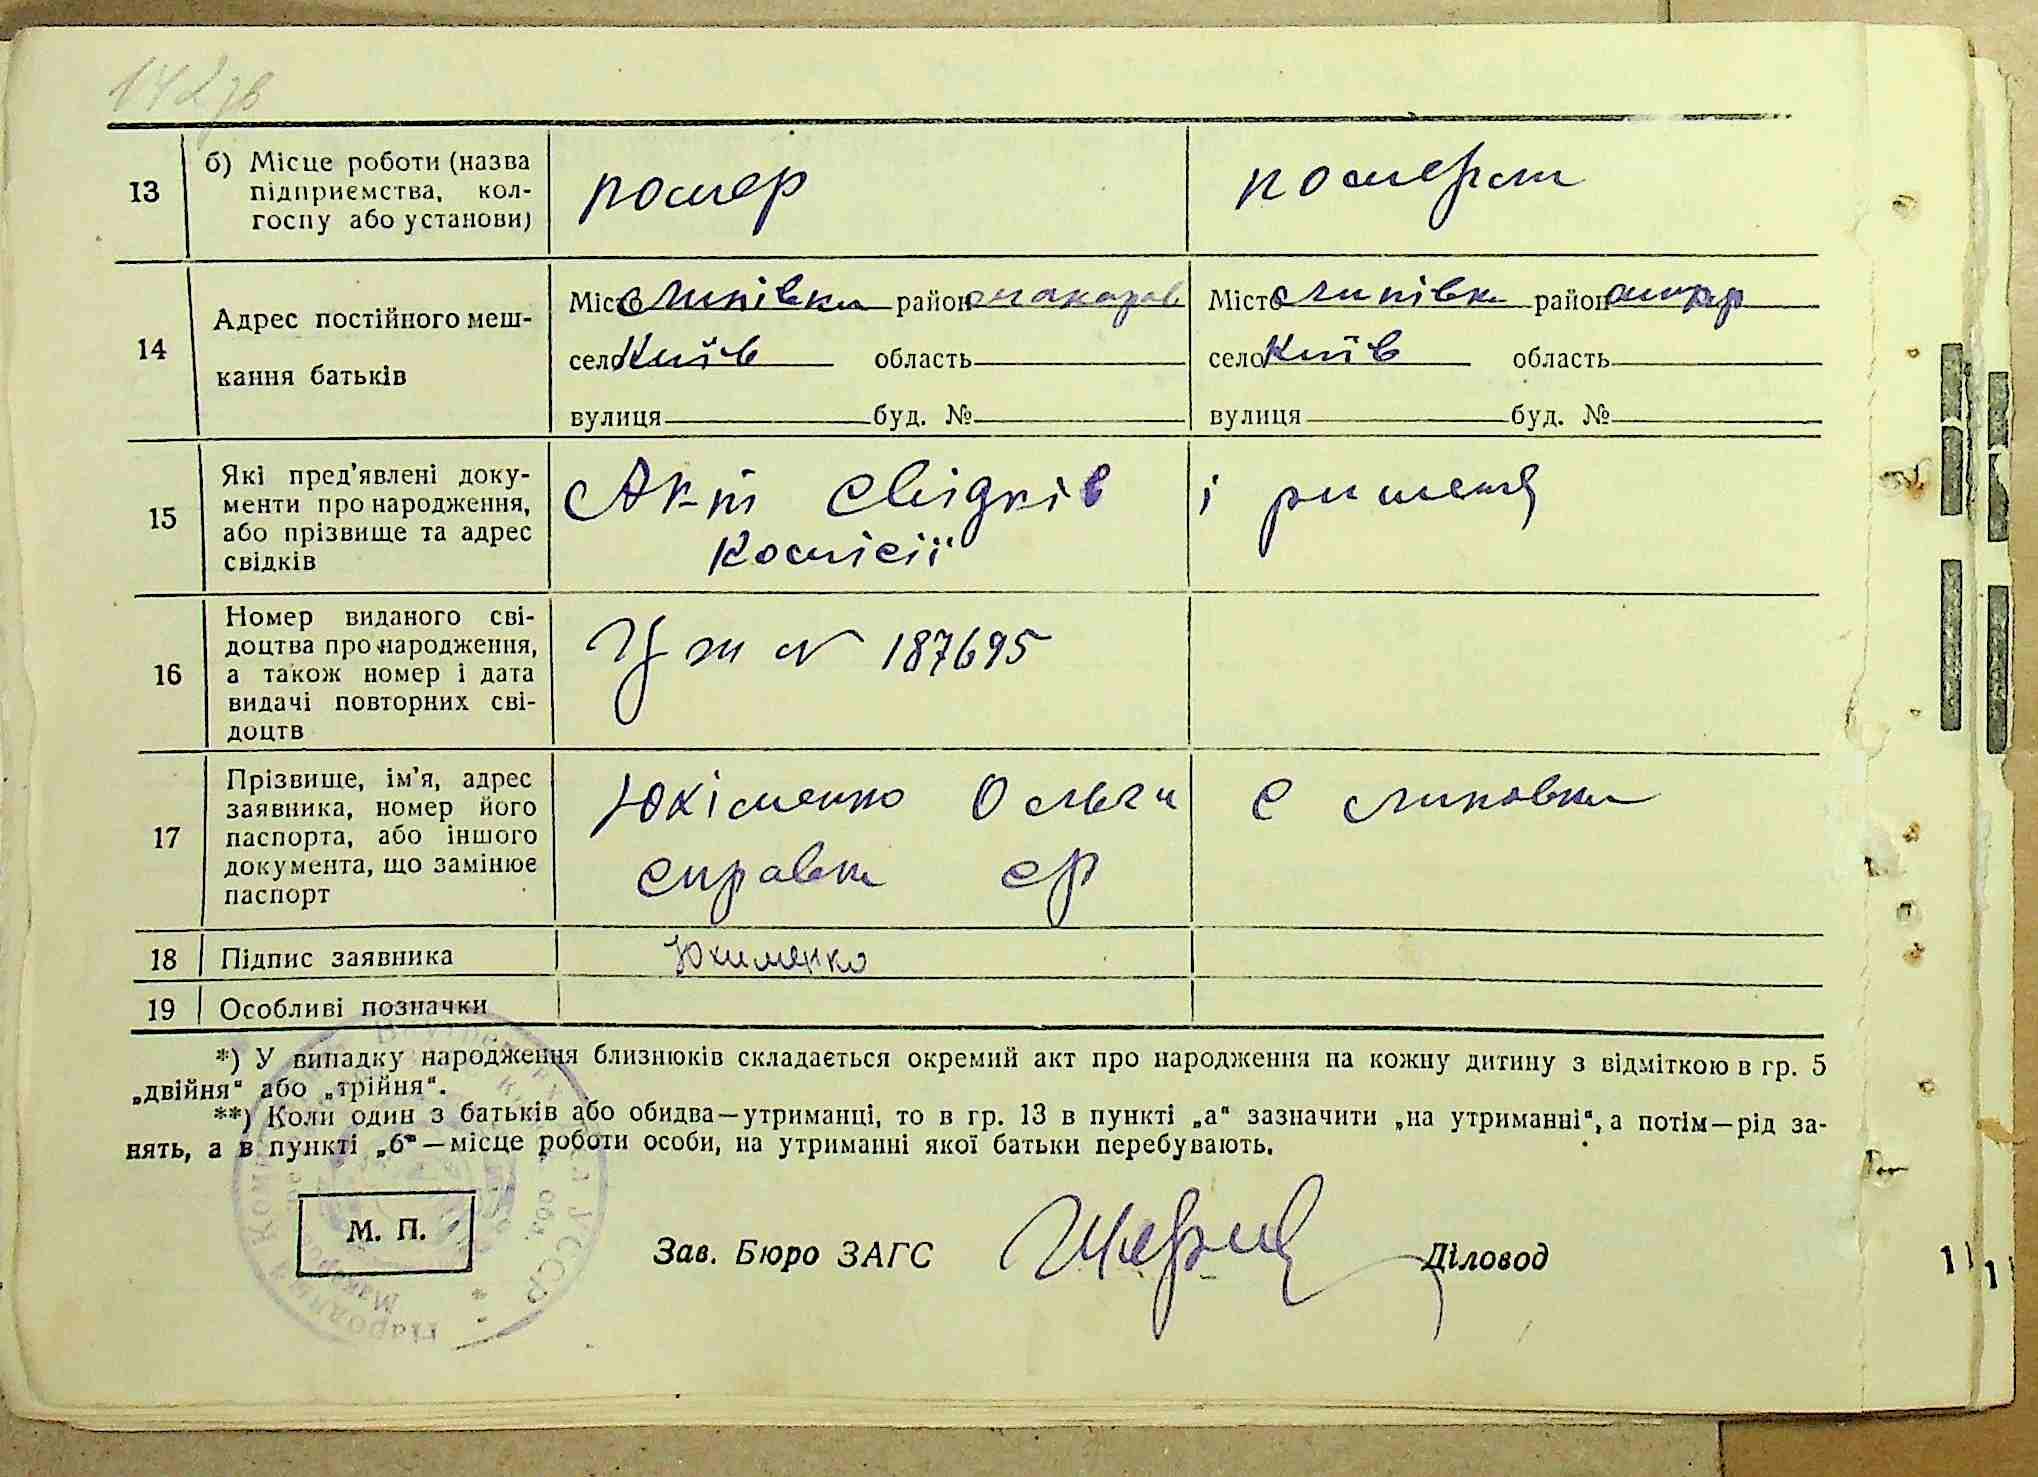 142зв
13 б) Місце роботи (назва
підприємства, кол-
госпу або установи)
помер
померла
14 Адрес постійного меш-
кання батьків
Місто Липівка район макарів
село Київ область
вулиця буд. №
Місто Липівка район
село Київ область
вулиця буд. №
15 Які пред'явлені доку-
менти про народження,
або прізвище та адрес
свідків
Акт свідків і рішення
комісії
16 Номер виданого сві-
доцтва про народження,
а також номер і дата
видачі повторних сві-
доцтв
№ 187695
17 Прізвище, ім'я, адрес
заявника, номер його
паспорта, або іншого
документа, що замінює
паспорт
Юхіменко Ольга с Липовка
справка ср
18 Підпис заявника
Юхименко
19 Особливі позначки
*) У випадку народження близнюків складається окремий акт про народження на кожну дитину з відміткою в гр. 5
„двійня“ або „трійня“.
**) Коли один з батьків або обидва—утриманці, то в гр. 13 в пункті „а“ зазначити „на утриманні“, а потім—рід за-
нять, а в пункті „б“—місце роботи особи, на утриманні якої батьки перебувають.
М. П.
Зав. Бюро ЗАГС
Діловод